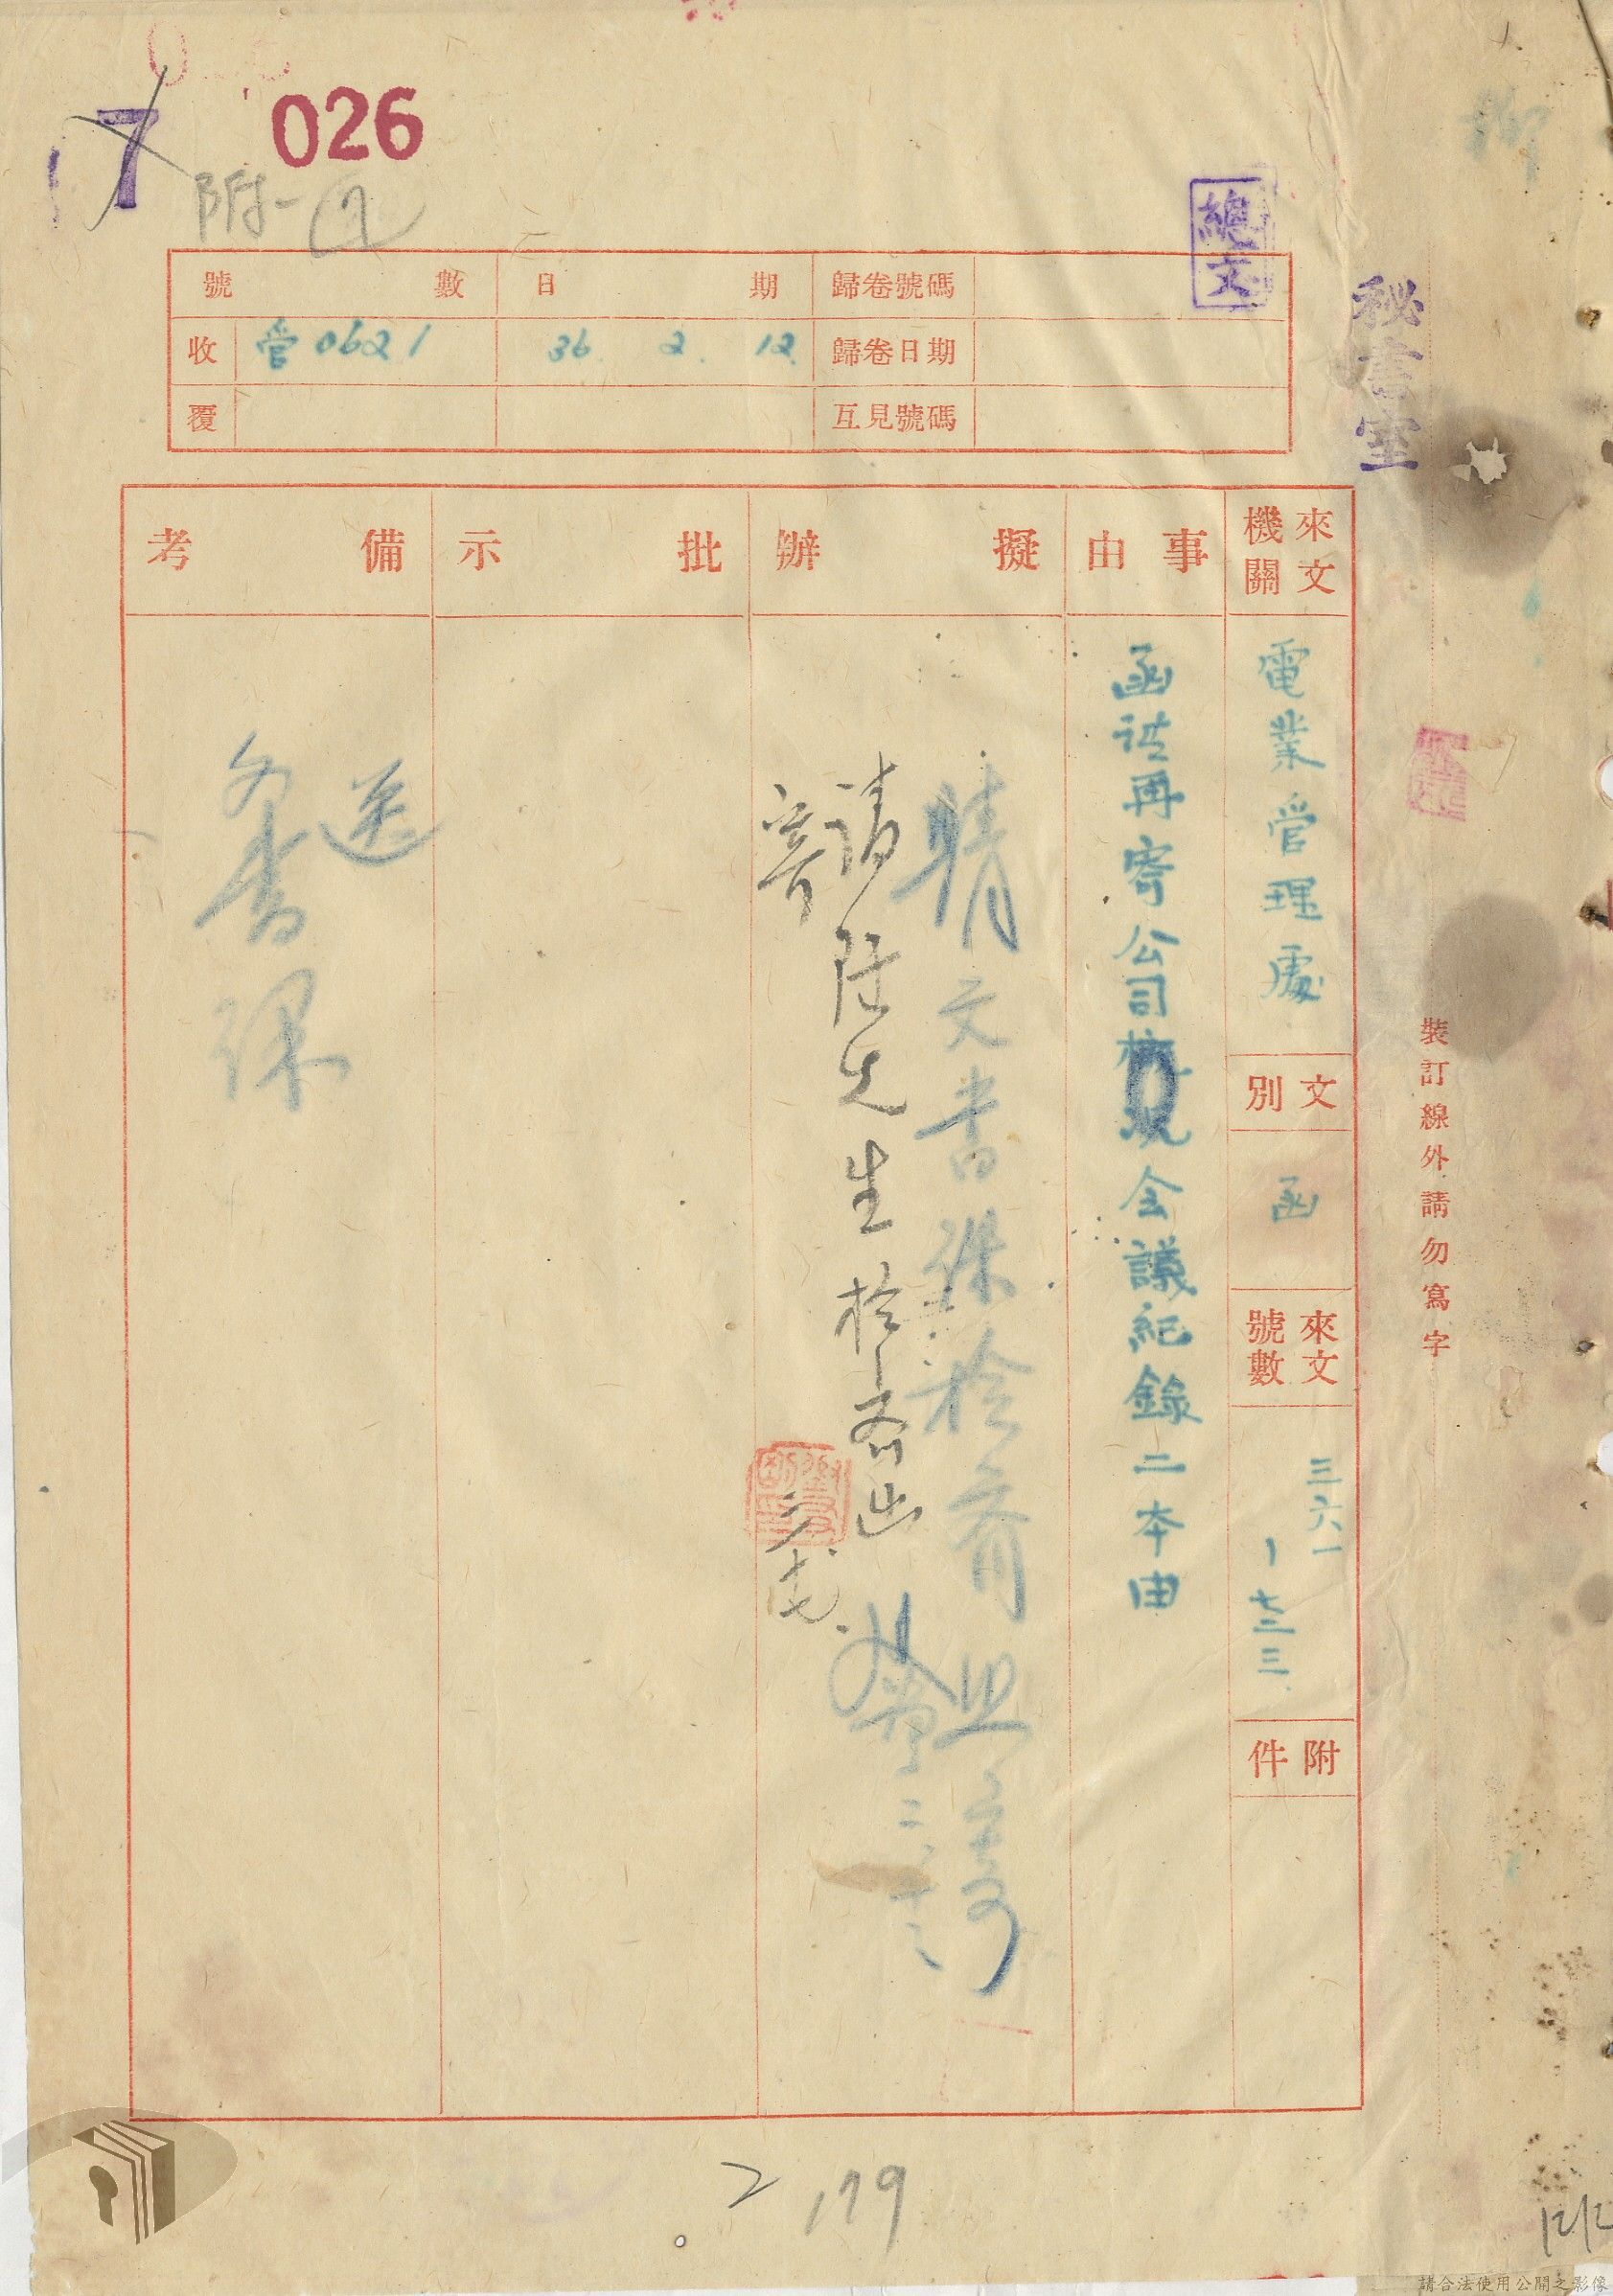 026
17
附-
總文
號數 日期 歸卷號碼
收 管0621 36. 2. 12. 歸卷日期
覆 互見號碼
秘書室
來文機關
電業管理處
文別
函
來文號數
三六一
七三三
附件
事由
函請再寄公司概況会議紀錄二本由
擬辦
請文書課檢齊
請陸先生檢齊出
寄
批示
備考
送
文書課
裝訂線外請勿寫字
179
請合法使用公開之影像